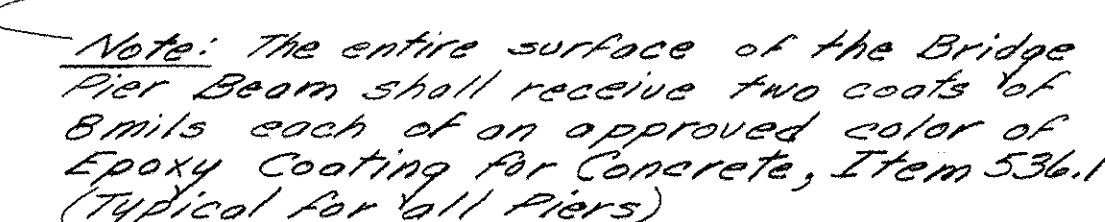 Note: The entire surface of the Bridge
Pier Beam shall receive two coats of
8mils each of an approved color of
Epoxy Coating for Concrete, Item 536.1
(Typical for all Piers)